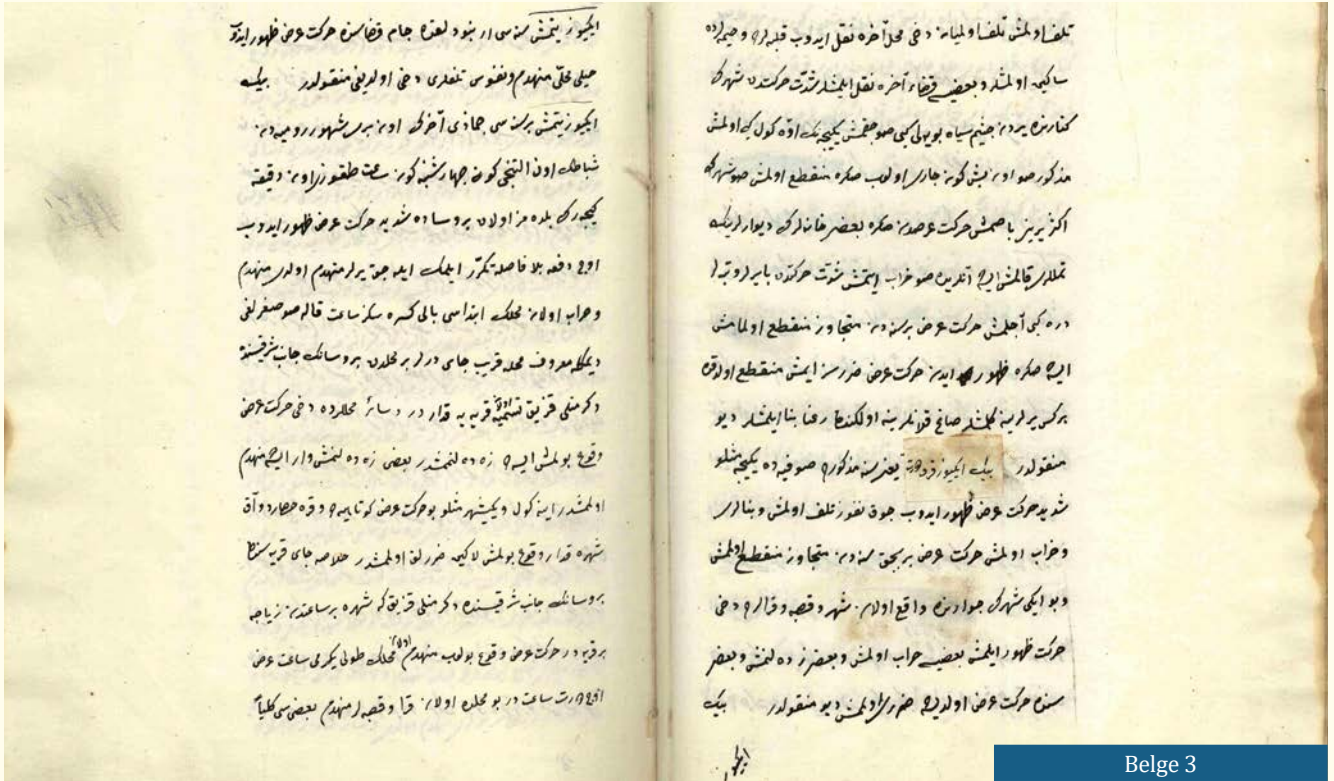 تلف اولمش تلف اولميان دخى محل آخره نقل ايدوب قلبه لره وخيمه لرده
ساكن اولمشلر وبعضيسى قضاء آخره نقل ايلمشلر شدت حركتدن شهرك
كنارنده يردن چشم سياه بويالى كبى صو چقمش يكيجه نك اوده كول كبى اولمش
مذكور صو اون بش كون جارى اولوب صكره منقطع اولمش صو شهرك
اكثر يرين باصمش حركت عرضدن صكره بعض خانه لرك ديوارلرينك
تمللرى قالمش ايسه آنلريده صو خراب ايتمش شدت حركتدن بايرلر وتپه لر
دره كبى آچلمش حركت عرض بر سنه دن متجاوز منقطع اولمامش
ايسه صكره ظهور ايدن حركت عرض ضررسز ايمش منقطع اولدقده
هركس يرلرينه كلمشلر صاغ قلانلر ينه اولكندن رعنا بنا ايلمشلر ديو
منقولدر بيك ايكيوز يعنى سنه مذكوره صوفيه ده يكيجه مثللو
شديد حركت عرض ظهور ايدوب چوق نفوز تلف اولمش وبنالرى
وخراب اولمش حركت عرض بر بچق سنه دن متجاوز منقطع اولمامش
وبو ايكى شهرك جوارنده واقع اولان شهر وقصبه وقرالره دخى
حركت ظهور ايلمش بعضيسى خراب اولمش وبعضى زده لنمش وبعض
سنده حركت عرض اولديسه ضررى اولمامش ديو منقولدر بيك
ايكيوز
ايكيوز يتمش سنه سى ذلقعده جام قضاسنده حركت عرض ظهور ايدوب
خيلى محلى منهدم ونفوس تلفلرى دخى اولديغى منقولدر بيك
ايكيوز يتمش بر سنه سى جماذى آخرك اون شهور روميه دن
شباطك اون التنجى كون چهارشنبه كون ساعت طقوزى اون دقيقه
كچه رك بلده مز اولان بروساده شديد حركت عرض ظهور ايدوب
اوچ دفعه بلا فاصله تكرر ايلمك ايله چوق يرلر منهدم اولدى منهدم
وخراب اولان محلك ابتداسى بالى كسره سكز ساعت قاله صو صغرلغى
ديمكله معروف محله قريب جاى در بر محلدن بروسانك جانب شرقيسنده
دكرمنلى قزيق تسميه اولان قريه يه قدار در وسائر محللرده دخى حركت عرض
وقوع بولمش ايسه زده لنمشدر بعضى زده لنمش وار ايسه منهدم
اولمامشدر اينه كول ويكيشهر مثللو بو حركت عرض كوتاهيه وقره حصار وآق
شهره قدار وقوع بولمش لاكن ضررلق اولمامشدر خلاصه جاى قريه سندن
بروسانك جانب شرقيسنده دكرمنلى قزيق كه شهره بر ساعتدن زياجه
بر قريه در حركت عرض وقوع بولوب منهدم اولان محلك طولى يكرمى ساعت عرض
اوچ درت ساعت در بو محلده اولان قرا وقصبه لر منهدم بعضيسى كلياً
Belge 3